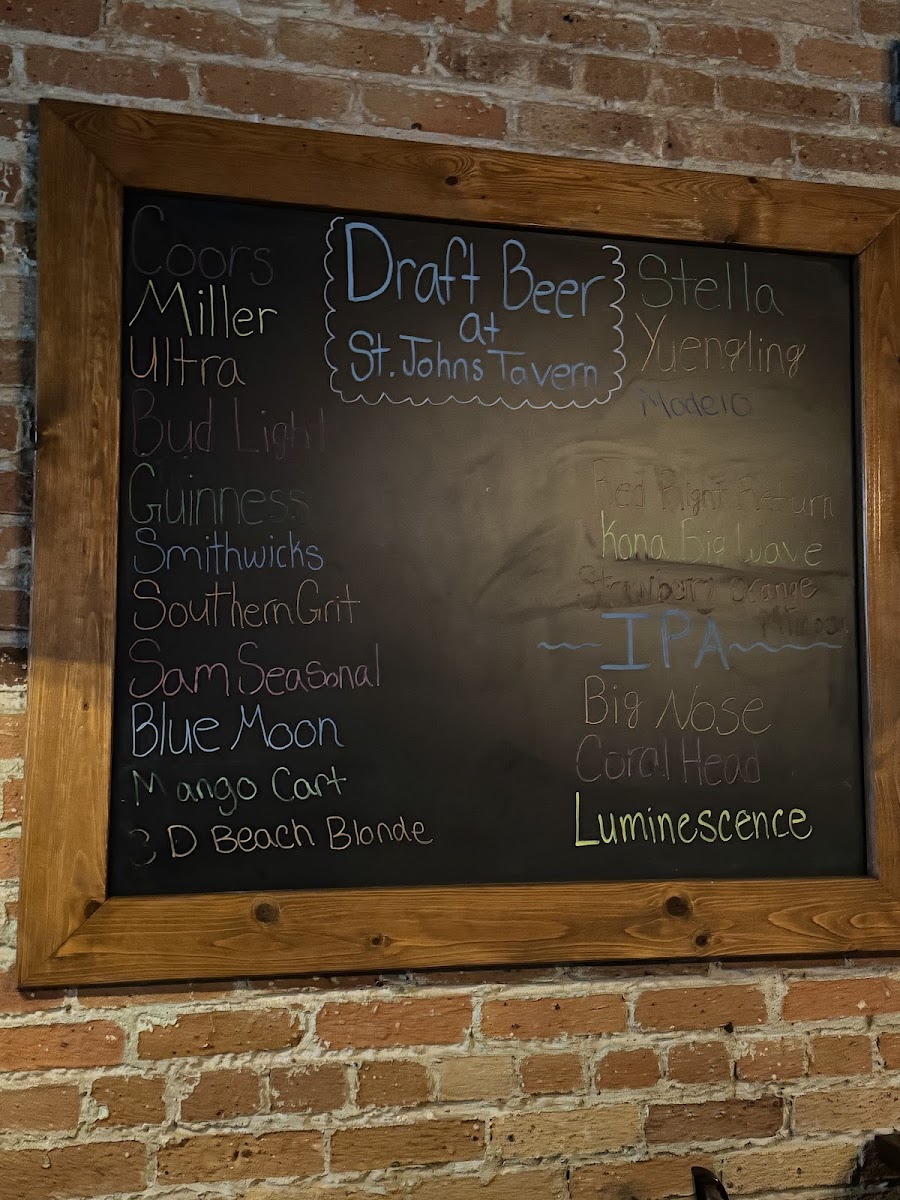 Draft Beer
at
St. Johns Tavern
Coors
Miller
Ultra
Bud Light
Guinness
Smithwicks
Southern Grit
Sam Seasonal
Blue Moon
Mango Cart
3 D Beach Blonde
Stella
Yuengling
Modelo
Red Right Return
Kona Big Wave
Strawburry Orange
Mimosa
IPA
Big Nose
Coral Head
Luminescence